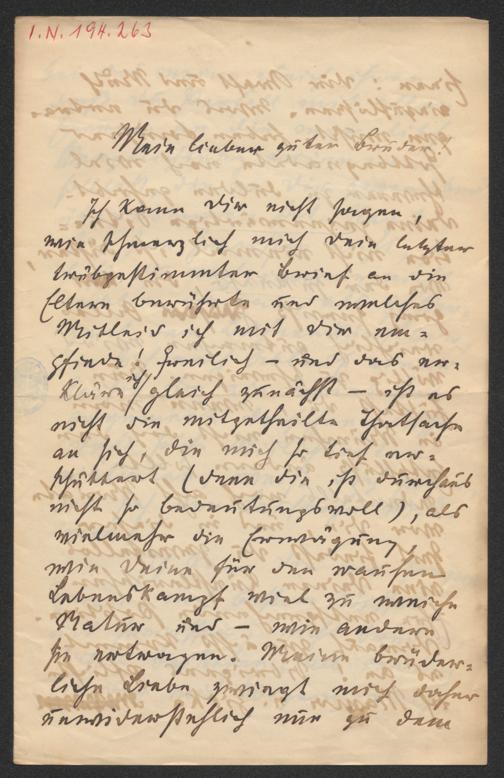 I.N. 194.263
Mein lieber guter Bruder!
Ich kann Dir nicht sagen,
wie schmerzlich mich Dein letzter
trübgestimmter Brief an die
Eltern berührte und welches
Mitleid ich mit Dir em-
pfinde! Freilich – und das er-
kläre ich gleich zunächst – ist es
nicht die mitgetheilte Thatsache
an sich, die mich so tief er-
schüttert (denn die ist durchaus
nicht so bedeutungsvoll), als
vielmehr die Erwägung,
wie Deine für den rauhen
Lebenskampf viel zu weiche
Natur und – wie andere
sie ertragen. Meine brüder-
liche Liebe zwingt mich daher
unwiderstehlich nun zu dem